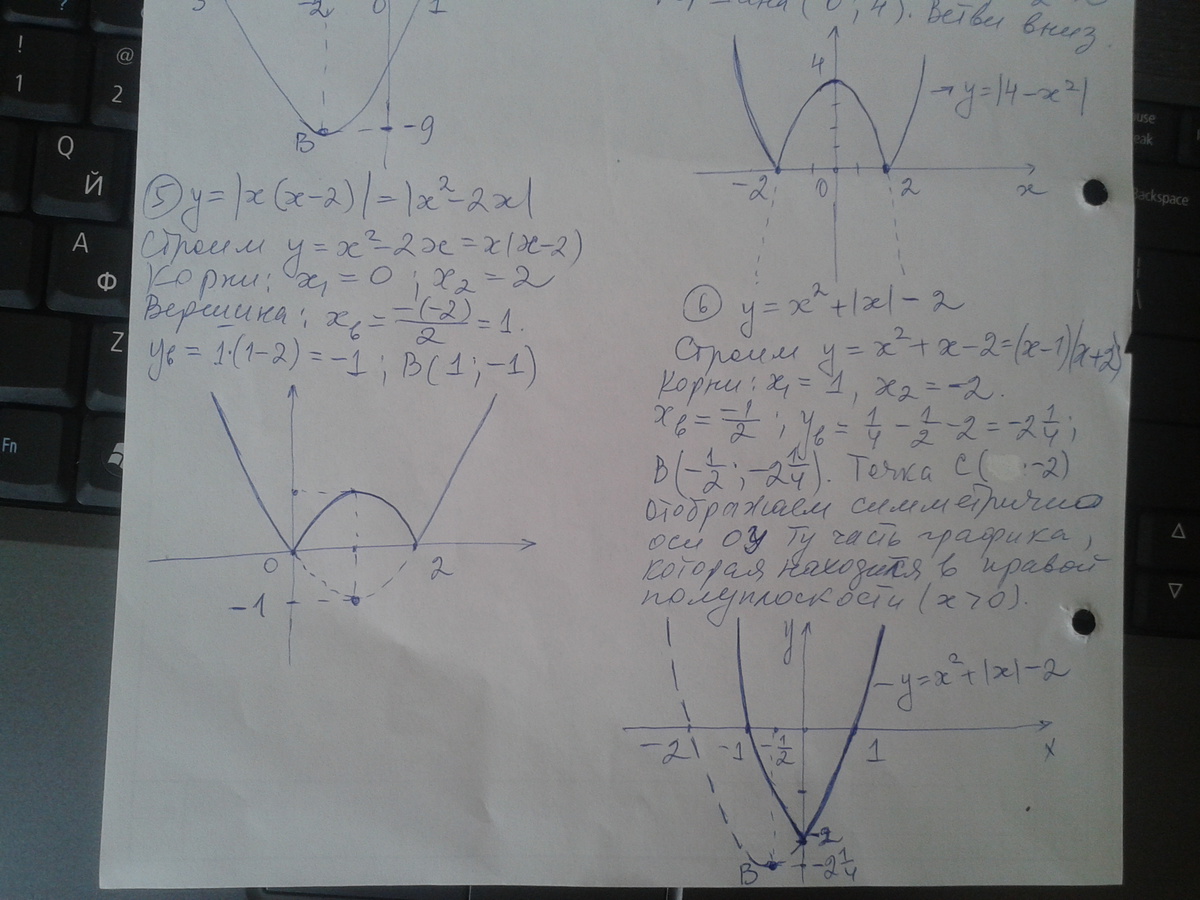 -2 0 1
B -9
⑤ y = |x(x-2)| = |x²-2x|
Строим y = x²-2x = x(x-2)
Корни: x₁ = 0 ; x₂ = 2
Вершина: xв = -(-2)/2 = 1.
yв = 1·(1-2) = -1 ; B(1 ; -1)
0 2
-1
(0 ; 4). Ветви вниз.
4 → y = |4-x²|
-2 0 2 x
⑥ y = x² + |x| - 2
Строим y = x² + x - 2 = (x-1)(x+2)
Корни: x₁ = 1, x₂ = -2.
xв = -1/2 ; yв = 1/4 - 1/2 - 2 = -2 1/4 ;
B(-1/2 ; -2 1/4). Точка C( ; -2)
Отображаем симметрично
оси OY ту часть графика,
которая находится в правой
полуплоскости (x > 0).
y - y = x² + |x| - 2
-2 -1 -1/2 1 x
-2
B -2 1/4
! 1
@ 2
Q Й
A Ф
Z
Fn
Backspace